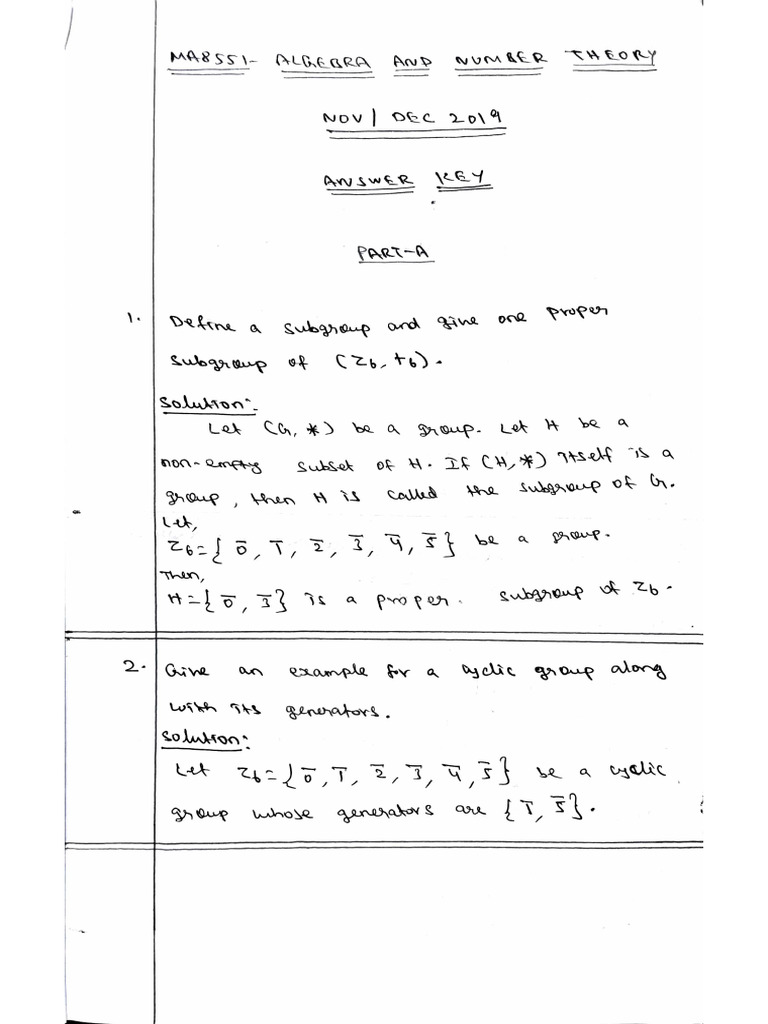 MA8551- ALGEBRA AND NUMBER THEORY
NOV / DEC 2019
ANSWER KEY
PART-A
1. Define a subgroup and give one proper
subgroup of (Z6, +6).
Solution:-
Let (G, *) be a group. Let H be a
non-empty subset of H. If (H, *) itself is a
group, then H is called the subgroup of G.
Let,
Z6 = { 0̅, 1̅, 2̅, 3̅, 4̅, 5̅ } be a group.
Then,
H = { 0̅, 3̅ } is a proper. subgroup of Z6.
2. Give an example for a cyclic group along
with its generators.
Solution:
Let Z6 = { 0̅, 1̅, 2̅, 3̅, 4̅, 5̅ } be a cyclic
group whose generators are { 1̅, 5̅ }.